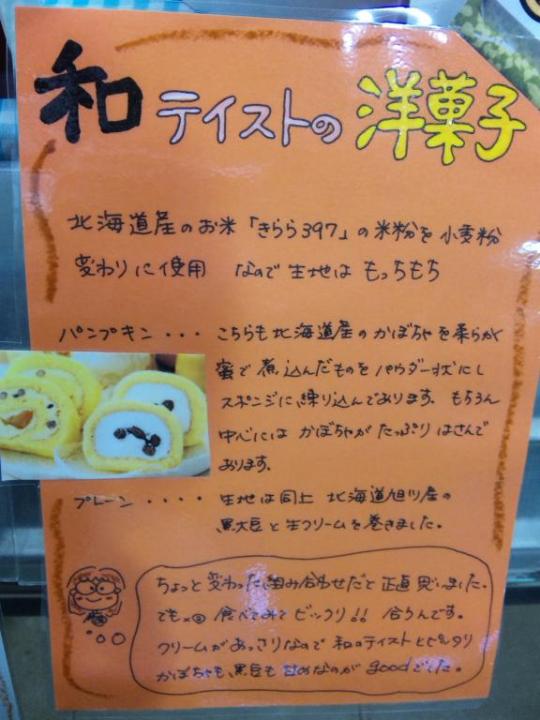 和テイストの洋菓子
北海道産のお米「きらら397」の米粉を小麦粉
変わりに使用 なので生地は もっちもち
パンプキン・・・ こちらも北海道産のかぼちゃを柔らかく
蜜で煮込んだものをパウダー状にし
スポンジに練り込んであります。もちろん
中心には かぼちゃが たっぷり はさんで
あります。
プレーン・・・・ 生地は同上 北海道旭川産の
黒大豆と生クリームを巻きました。
ちょっと変わった組み合わせだと正直思いました。
でも 食べてみて ビックリ!! 合うんです。
クリームがあっさりなので 和のテイストとピッタリ
かぼちゃも、黒豆も 甘めなのが goodでした。